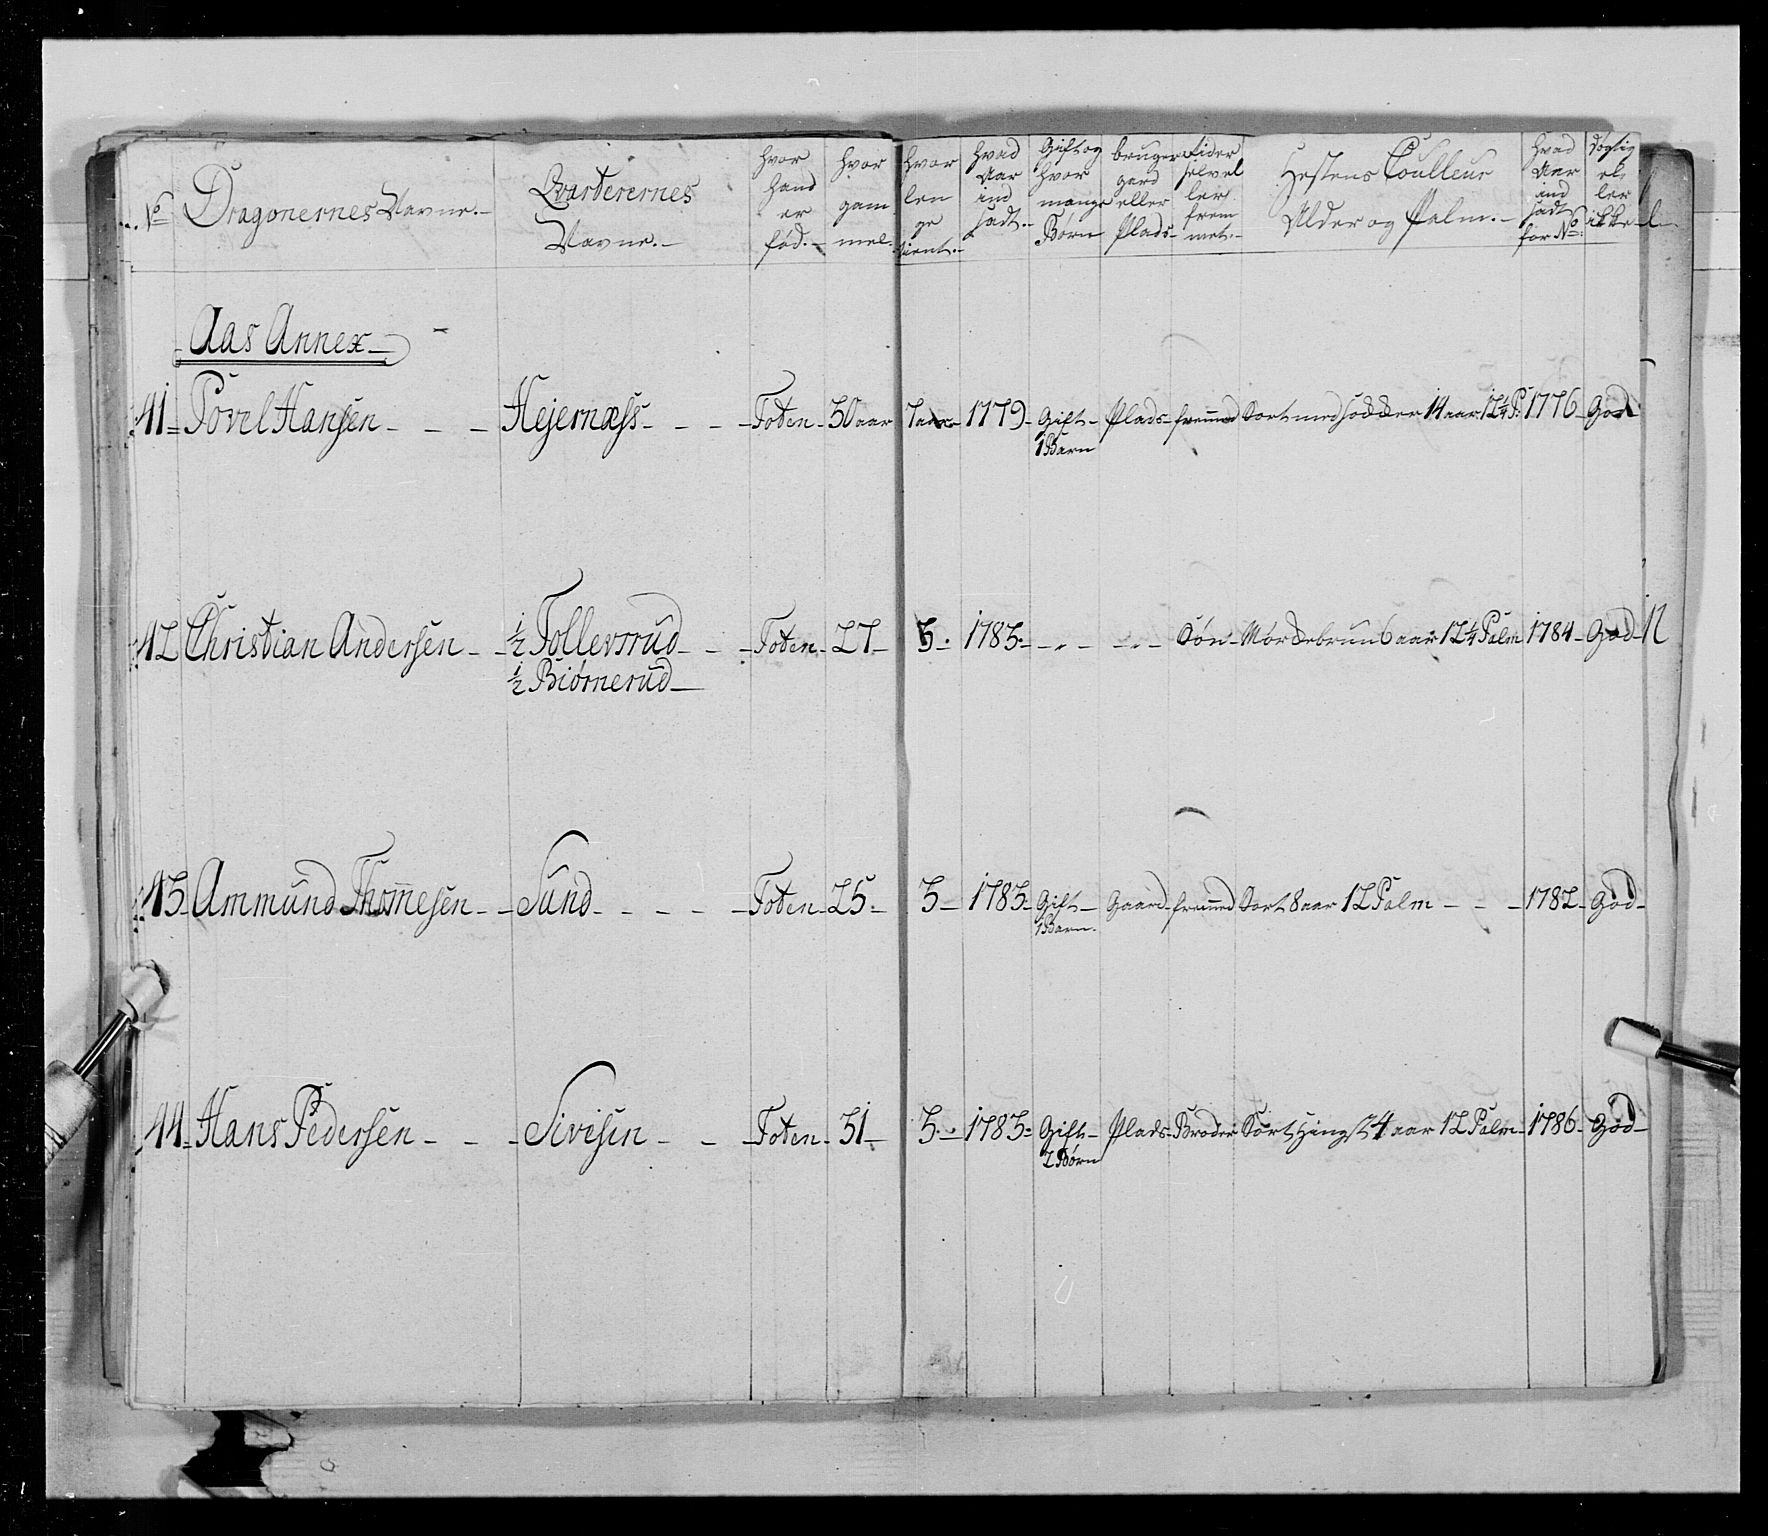 No Dragonernes Navne.- Qvarterernes Navne.- hvor hand er fød.- hvor gam mel. hvor len ge tient.- hvad Aar ind sadt.- Gift og hvor mange Børn bruger gard eller Plads- rider selvel ler frem met.- Hestens Coulleur Alder og Palm.- hvad Aar ind sadt for No. dygtig el- ler ikke
Aas Annex
41 Povel Hansen - - - Hejernæss - - - Toten - 30 aar 7 aar - 1779 - Gift - Plads - fremmed Sort med sokker 14 aar 12¼ P: 1776 - God
1 Barn
42 Christian Andersen - ½ Tollevsrud - - Toten - 27 - 3. 1783 - - - Søn - Mørkebrun 6 aar 12¼ Palm 1784 - God -
½ Biørnerud -
43 Ammund Thomesen - Sund - - - - Toten - 25 - 3 - 1783 - Gift - Gaard - fremmed Sort 8 aar 12 Palm - - - 1782 - God -
1 Barn.
44 Hans Pedersen - - - Sivesin - - Toten - 31 - 3 - 1783 - Gift - Plads - Broder Sort Hingst 4 aar 12 Palm - 1786 - God -
2 Børn